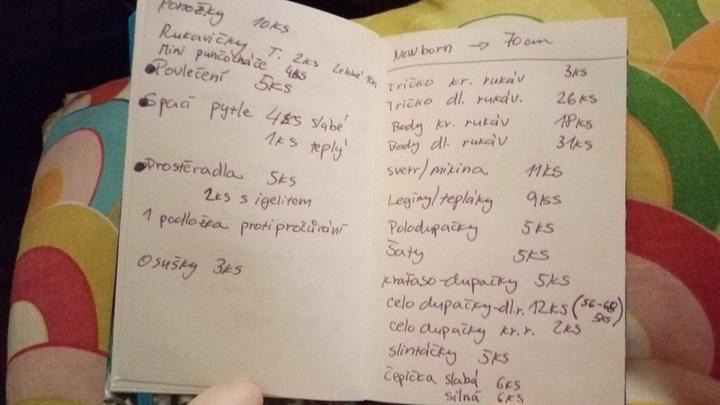 Ponožky 10ks
Rukavičky T. 2ks
Mini punčocháče 4ks
Povlečení 5ks
Spací pytle 4ks slabé
1ks teplý
Prostěradla 5ks
2ks s igelitem
1 podložka proti pročůrání
Osušky 3ks
Newborn → 70cm
Tričko kr. rukáv 3ks
Tričko dl. rukáv. 26ks
Body kr. rukáv 18ks
Body dl. rukáv 31ks
svetr/mikina 11ks
Legíny/tepláky 9ks
Polodupačky 5ks
Šaty 5ks
kraťaso-dupačky 5ks
celo dupačky-dl.r. 12ks (56-68
5ks)
celo dupačky kr.r. 2ks
slintáčky 5ks
čepička slabá 6ks
silná 6ks